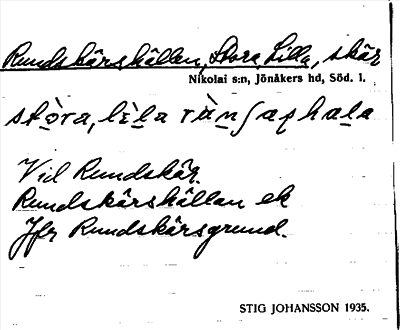 Rundskärshällen, Stora Lilla, skär
Nikolai s:n, Jönåkers hd, Söd. l.
Vid Rundskär.
Rundskärshällan ek
Jfr Rundskärsgrund.
STIG JOHANSSON 1935.